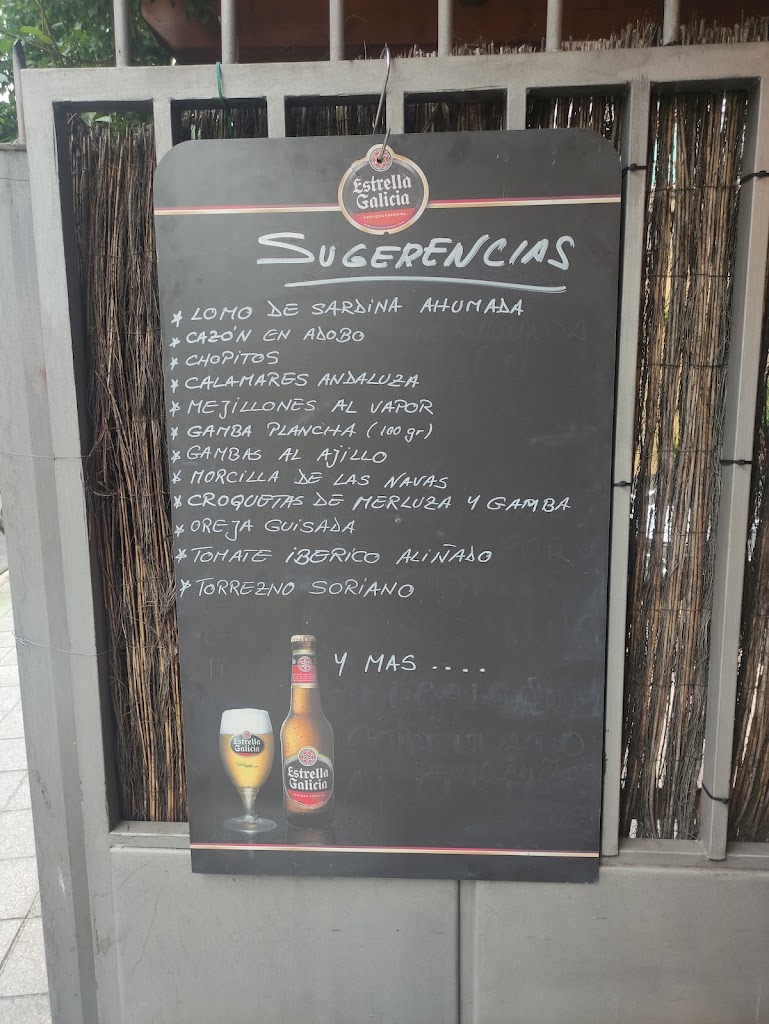 Estrella
Galicia
CERVEZA ESPECIAL
SUGERENCIAS
* LOMO DE SARDINA AHUMADA
* CAZÓN EN ADOBO
* CHOPITOS
* CALAMARES ANDALUZA
* MEJILLONES AL VAPOR
* GAMBA PLANCHA (100 gr)
* GAMBAS AL AJILLO
* MORCILLA DE LAS NAVAS
* CROQUETAS DE MERLUZA Y GAMBA
* OREJA GUISADA
* TOMATE IBERICO ALIÑADO
* TORREZNO SORIANO
Y MAS ....
Estrella
Galicia
Estrella
Galicia